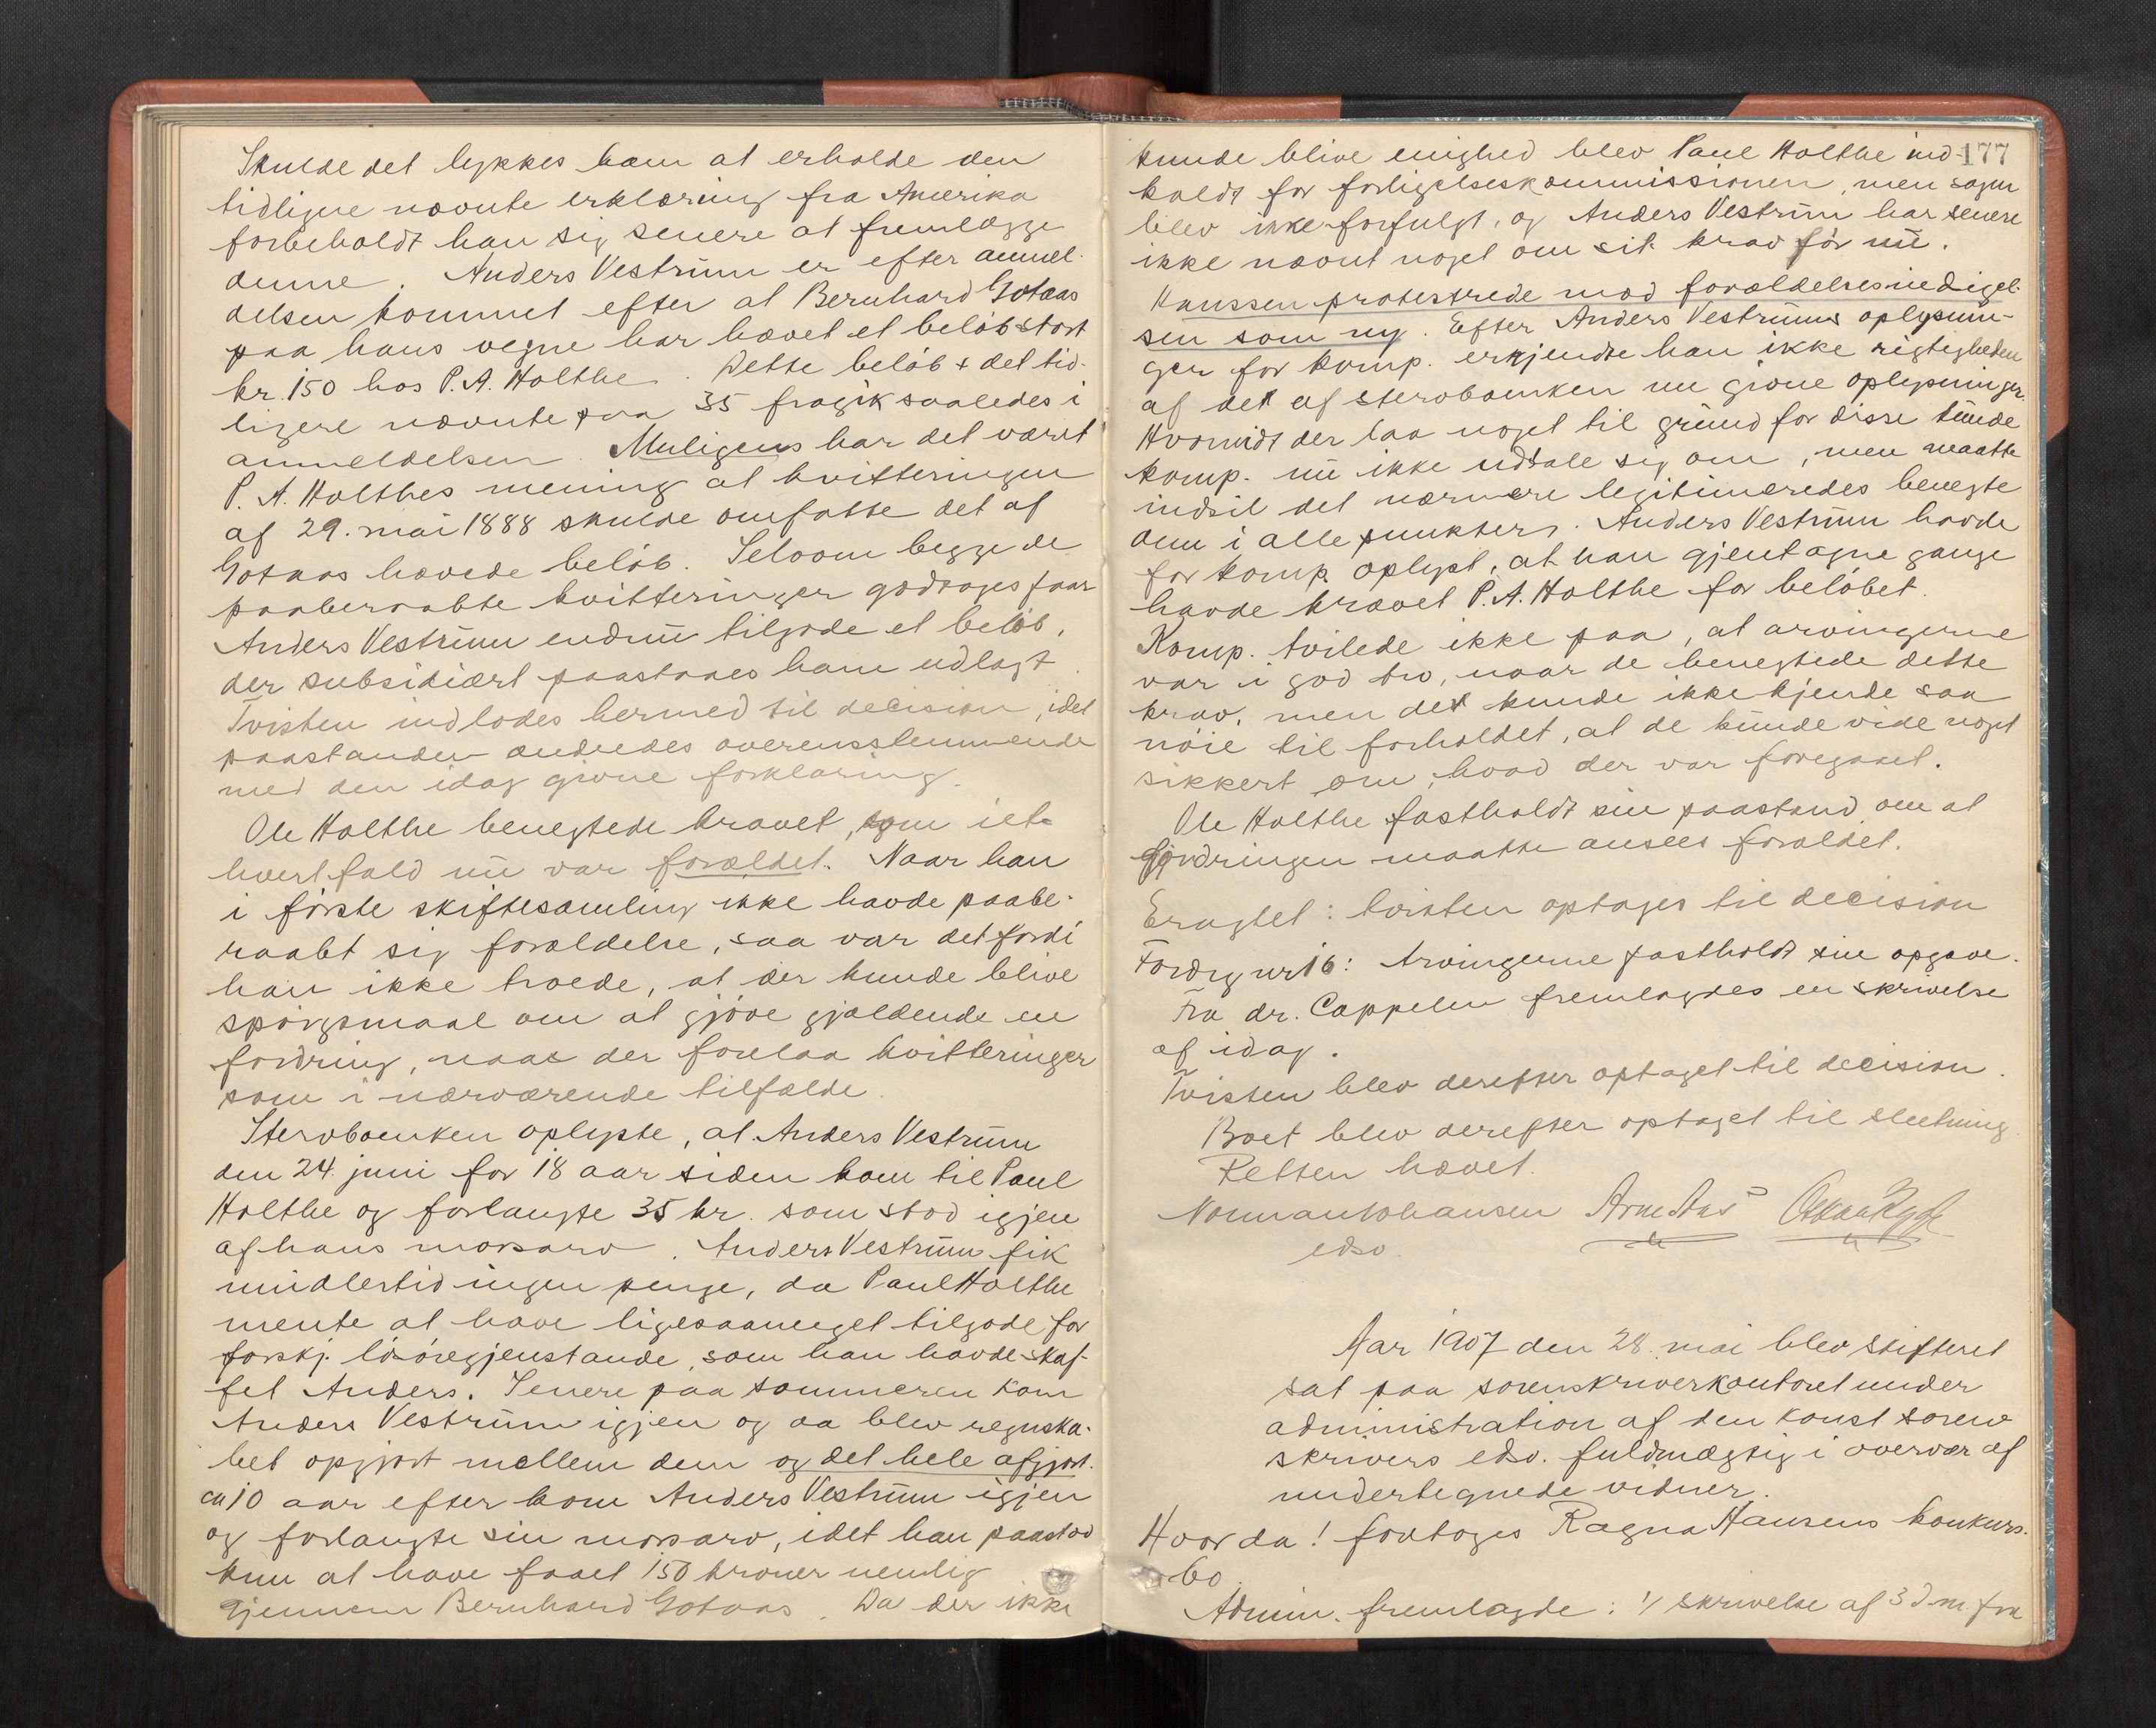 Skulde det lykkes ham at erholde den
tidligere nævnte erklæring fra Amerika
forbeholdt han sig senere at fremlægge
denne. Anders Vestrum er efter anmel-
delsen kommet efter at Bernhard Gotaas
paa hans vegne har hævet et beløb stort
kr. 150 hos P. A. Holthe. Dette beløb + det tid-
ligere nævnte paa 35 fragik saaledes i
anmeldelsen. Muligens har det været
P. A. Holthes mening at kvitteringen
af 29. mai 1888 skulde omfatte det af
Gotaas hævede beløb. Selvom begge de
paaberaabte kvitteringer godtages faar
Anders Vestrum endnu tilgode et beløb,
der subsidiært paastaaes ham udlagt
Tvisten indlodes hermed til decision, idet
paastanden ændredes overensstemmende
med den idag givne forklaring.
Ole Holthe benegtede kravet, som iet-
hvertfald nu var forældet. Naar han
i første skiftesamling ikke havde paabe-
raabt sig forældelse, saa var det fordi
han ikke troede, at der kunde blive
spørgsmaal om at gjøre gjældende en
fordring, naar der forelaa kvitteringer
som i nærværende tilfælde.
Stervboenken oplyste, at Anders Vestrum
den 24. juni for 18 aar siden kom til Paul
Holthe og forlangte 35 kr. som stod igjen
af hans morsarv. Anders Vestrum fik
imidlertid ingen penge, da Paul Holthe
mente at have ligesaameget tilgode for
forskj. løsøregjenstande, som han havde skaf-
fet Anders. Senere paa sommeren kom
Anders Vestrum igjen og da blev regnska-
bet opgjort mellem dem og det hele afgjort.
ca 10 aar efter kom Anders Vestrum igjen
og forlangte sin morsarv, idet han paastod
kun at have faaet 150 kroner nemlig
gjennem Bernhard Gotaas. Da der ikke
177
kunde blive enighed blev Paul Holthe ind-
kaldt for forligelseskommissionen, men sagen
blev ikke forfulgt, og Anders Vestrum har senere
ikke nævnt noget om sit krav før nu.
Hanssen protesterede mod forældelsesindigel-
sen som ny. Efter Anders Vestrums oplysnin-
ger for komp. erkjendte han ikke rigtigheden
af det af stervboenken nu givne oplysninger.
Hvorvidt der laa noget til grund for disse kunde
komp. nu ikke udtale sig om, men maatte
indtil det nærmere legitimeredes benegte
dem i alle punkter. Anders Vestrum havde
for komp. oplyst, at han gjentagne gange
havde krævet P. A. Holthe for beløbet.
Komp. tvilede ikke paa, at arvingerne
var i god tro, naar de benegtede dette
krav, men det kunde ikke kjende saa
nøie til forholdet, at de kunde vide noget
sikkert om, hvad der var foregaaet.
Ole Holthe fastholdt sin paastand om at
fordringen maatte ansees forældet.
Eragtet: tvisten optages til decision
Fordrg nr 16: Arvingerne fastholdt sin opgave.
Fra dr. Cappelen fremlagdes en skrivelse
af idag.
Tvisten blev derefter optaget til decision.
Boet blev derefter optaget til slutning
Retten hævet.
Norman Johansen Arne Aas Oskar
edsv.
Aar 1907 den 28. mai blev skifteret
sat paa sorenskriverkontoret under
administration af den konst soren-
skrivers edsv. fuldmægtig i overvær af
undertegnede vidner.
Hvorda! foretoges Ragna Hansens konkurs-
bo.
Admin. fremlagde: 1/ skrivelse af 3 d.m. fra